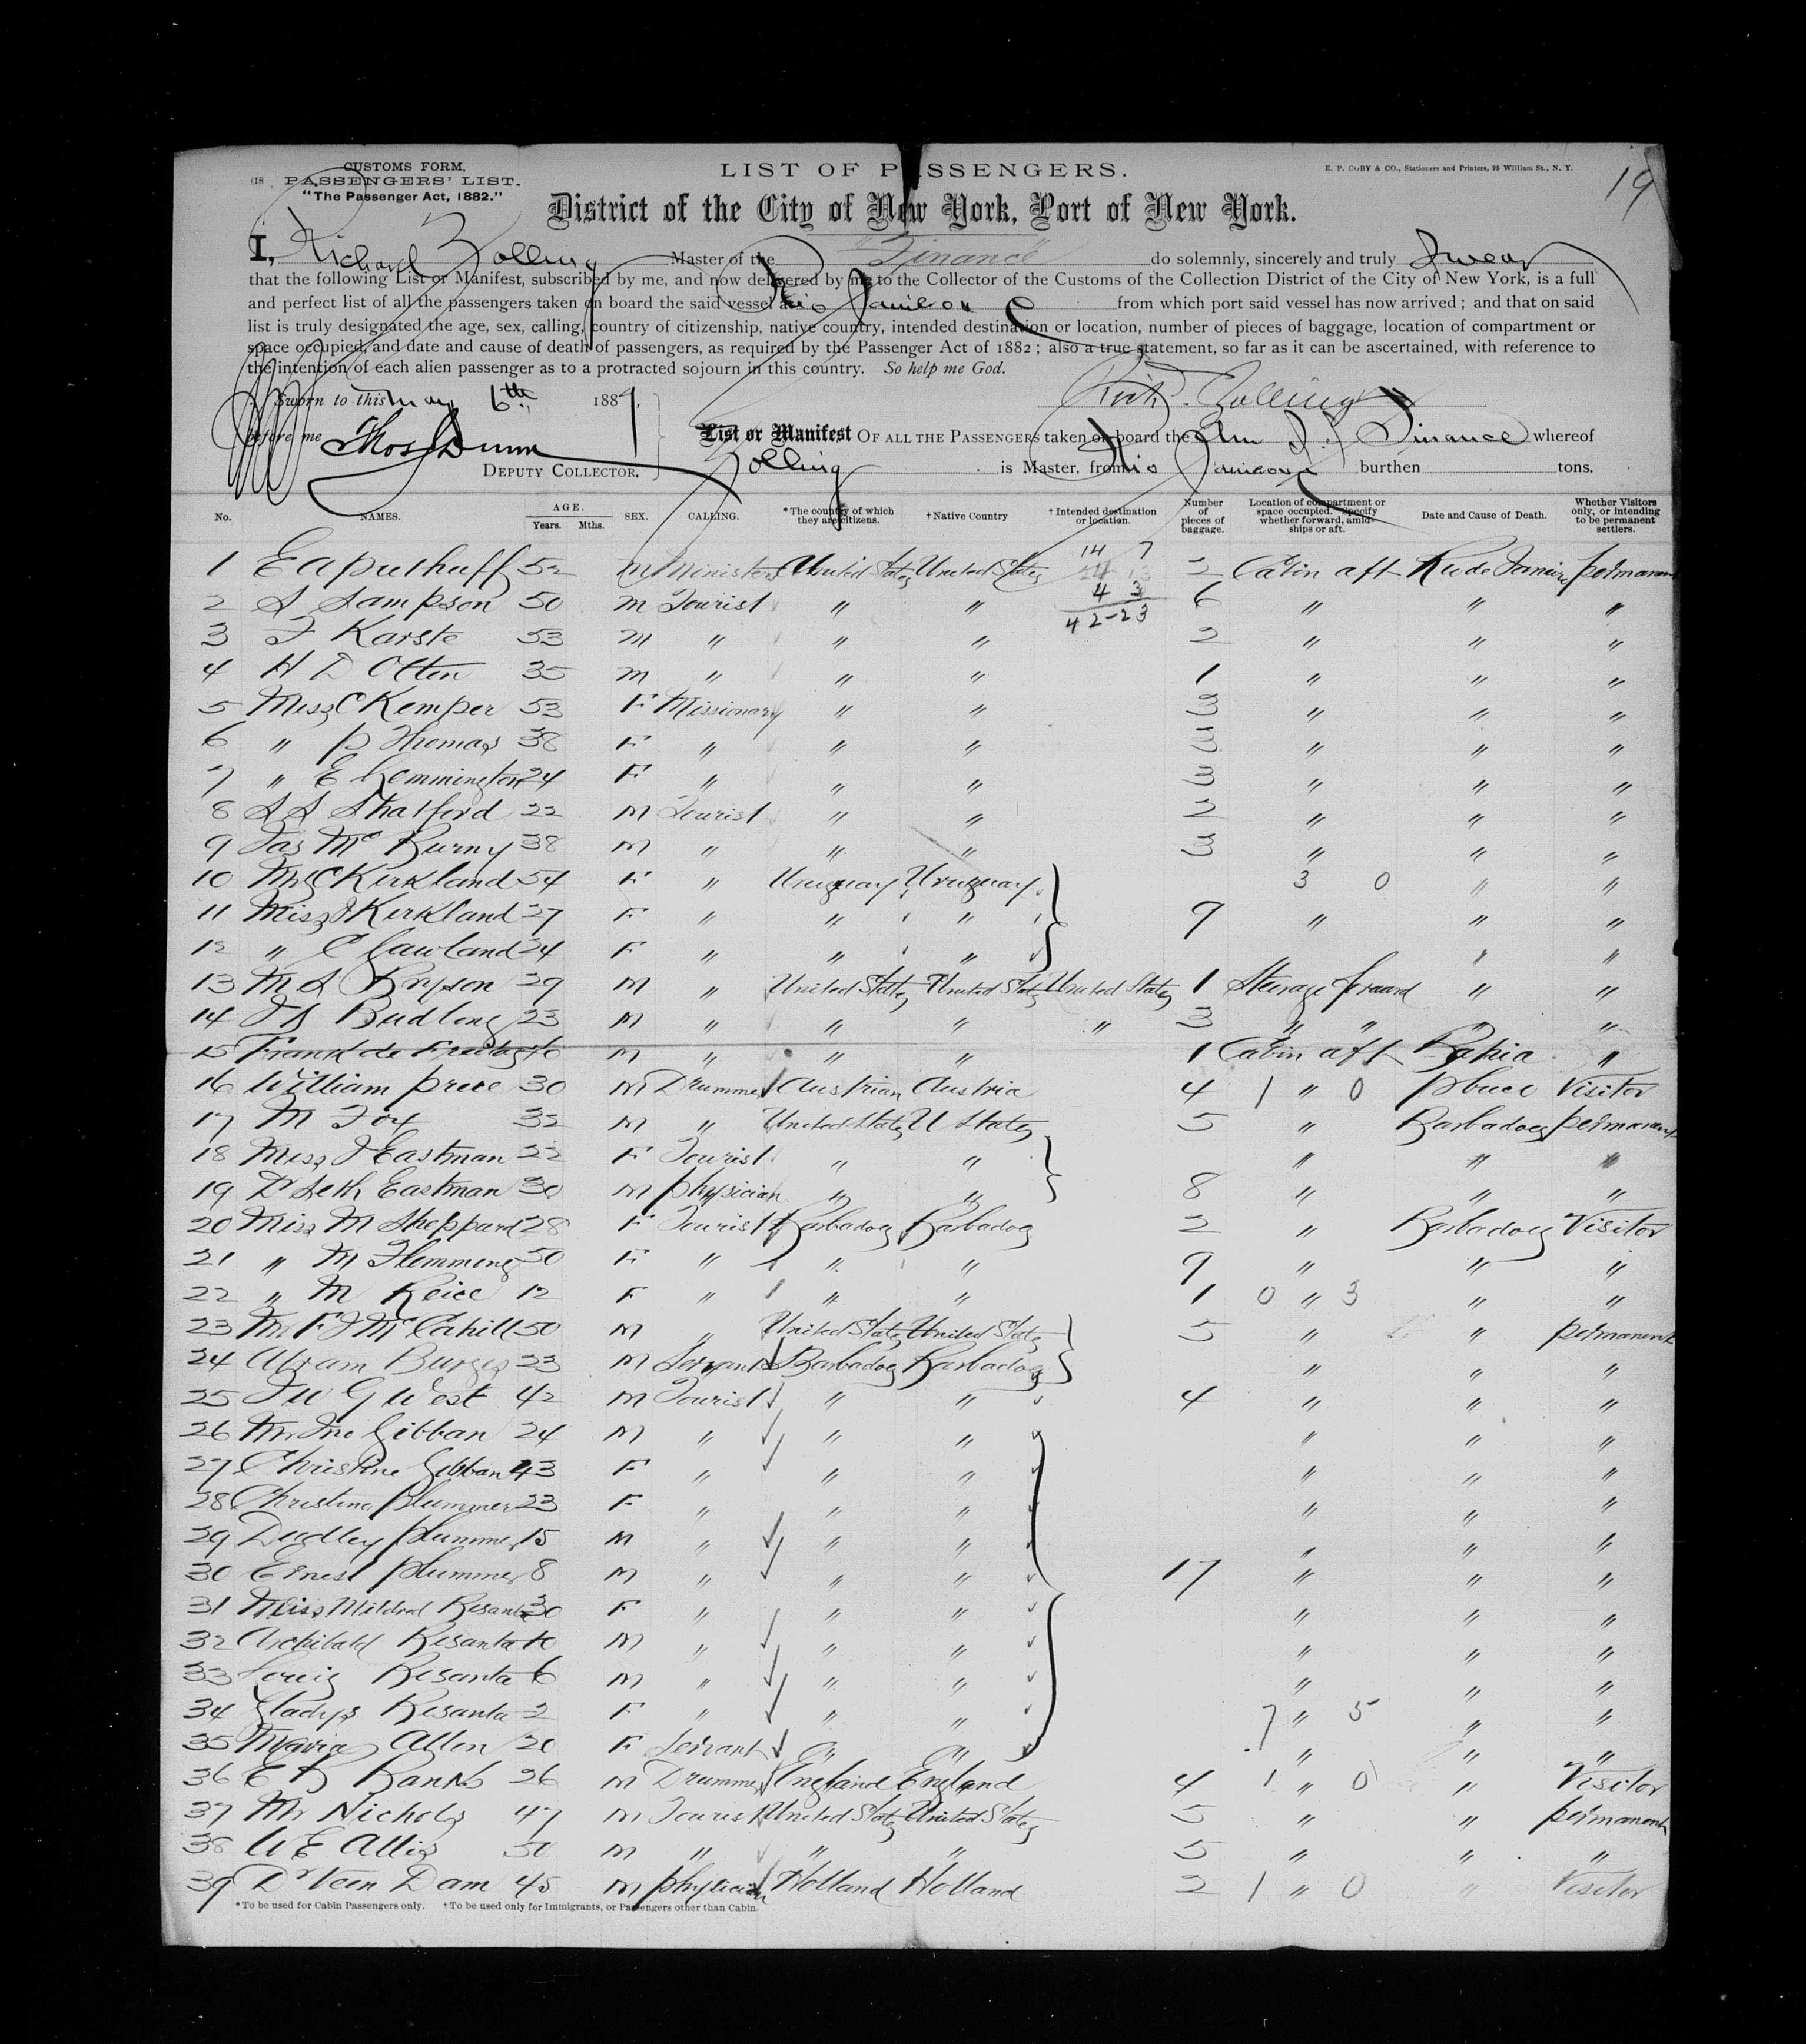 CUSTOMS FORM,
PASSENGERS' LIST.
"The Passenger Act, 1882."
LIST OF PASSENGERS.
E. P. COBY & CO., Stationers and Printers, 95 William St., N. Y.
19
District of the City of New York, Port of New York.
I, Richard Zolling Master of the "Finance" do solemnly, sincerely and truly Swear
that the following List or Manifest, subscribed by me, and now delivered by me to the Collector of the Customs of the Collection District of the City of New York, is a full
and perfect list of all the passengers taken on board the said vessel at Rio Janeiro from which port said vessel has now arrived; and that on said
list is truly designated the age, sex, calling, country of citizenship, native country, intended destination or location, number of pieces of baggage, location of compartment or
space occupied, and date and cause of death of passengers, as required by the Passenger Act of 1882; also a true statement, so far as it can be ascertained, with reference to
the intention of each alien passenger as to a protracted sojourn in this country. So help me God.
Sworn to this May 6th, 188
before me Thos Dunn
DEPUTY COLLECTOR.
List or Manifest OF ALL THE PASSENGERS taken on board the Finance whereof
Zolling is Master, from Rio Janeiro burthen tons.
No. NAMES. AGE. Years. Mths. SEX. CALLING. *The country of which they are citizens. †Native Country †Intended destination or location. Number of pieces of baggage. Location of compartment or space occupied. Specify whether forward, amidships or aft. Date and Cause of Death. Whether Visitors only, or intending to be permanent settlers.
14 7
4 3
42-23
1 52 M Minister United States United States 2 Cabin aft Rio de Janeiro permanent
2 S Sampson 50 M Tourist " " 6 " " "
3 F Karste 53 M " " " 2 " " "
4 H D Otten 35 M " " " 1 " " "
5 Miss C Kemper 53 F Missionary " " 3 " " "
6 " P Thomas 38 F " " " 3 " " "
7 " E Remmington 24 F " " " 3 " " "
8 S S Shatford 22 M Tourist " " 2 " " "
9 Jas Mc Burny 38 M " " " 3 " " "
10 Mrs C Kirkland 54 F " Uruguay Uruguay 3 0 " "
11 Miss J Kirkland 27 F " " " 9 " " "
12 " C 24 F " " " " "
13 M S 29 M " United States United States United States 1 Steerage forward " "
14 J S Budlong 23 M " " " " 3 " " " "
15 Frank de M " " " 1 Cabin aft Bahia "
16 William Price 30 M Drummer Austrian Austria 4 1 " 0 Pbuco Visitor
17 M Fox 32 M " United States U States 5 " Barbados permanent
18 Miss J Eastman 22 F Tourist " " " " "
19 Dr Seth Eastman 30 M physician " " 8 " " "
20 Miss M Sheppard 28 F Tourist Barbados Barbados 2 " Barbados Visitor
21 " M Flemming 50 F " " " 9 " " "
22 " M Reice 12 F " " " 1 0 " 3 " "
23 Mr F J McCahill 50 M " United States United States 5 " " permanent
24 Abram Burges 23 M Servant Barbados Barbados " " "
25 J W G West 42 M Tourist " " 4 " " "
26 Mr Jno Gibban 24 M " " " " " "
27 Christine Gibban 43 F " " " " " "
28 Christina Plummer 23 F " " " " " "
29 Dudley Plummer 15 M " " " " " "
30 Ernest Plummer 8 M " " " 17 " " "
31 Miss Mildred Resanta 30 F " " " " " "
32 Archibald Resanta 10 M " " " " " "
33 Louis Resanta 6 M " " " " " "
34 Gladys Resanta 2 F " " " 7 " 5 " "
35 Maria Allen 20 F Servant " " " " "
36 E R Banks 26 M Drummer England England 4 1 " 0 " Visitor
37 Mr Nichols 47 M Tourist United States United States 5 " " permanent
38 W E Allis 50 M " " " 5 " " "
39 Dr Veen Dam 45 M physician Holland Holland 2 1 " 0 " Visitor
*To be used for Cabin Passengers only. †To be used only for Immigrants, or Passengers other than Cabin.